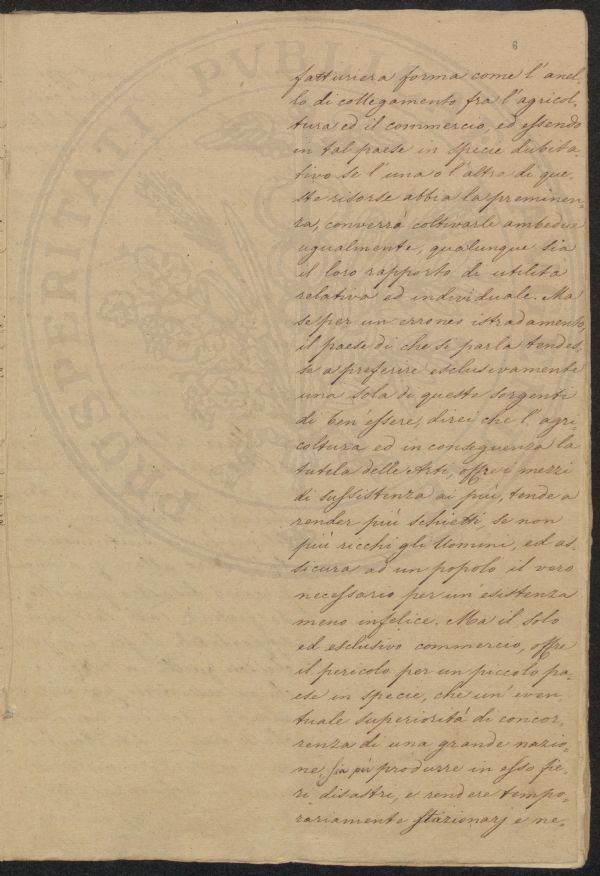 6
fatturiera forma come l'anel-
lo di collegamento fra l'agricol-
tura ed il commercio, ed essendo
in tal paese in specie dubita-
tivo se l'una o l'altra di que-
ste risorse abbia la preminen-
za, converrà coltivarle ambedue
ugualmente, qualunque sia
il loro rapporto di utilità
relativa ed individuale. Ma
se per un erroneo istradamento,
il paese di che si parla tendes-
se a preferire esclusivamente
una sola di queste sorgenti
di ben'essere, direi che l'agri-
coltura ed in conseguenza la
tutela delle Arti, offre i mezzi
di sussistenza ai più, tende a
render più schietti, se non
più ricchi gli Uomini, ed as-
sicura ad un popolo il vero
necessario per un'esistenza
meno infelice. Ma il solo
ed esclusivo commercio, offre
il pericolo per un piccolo pa-
ese in specie, che un'even-
tuale superiorità di concor-
renza di una grande nazio-
ne, produrre in esso fie-
ri disastri, e rendere tempo-
rariamente stazionarj e ne-
PROSPERITATI PVBLI